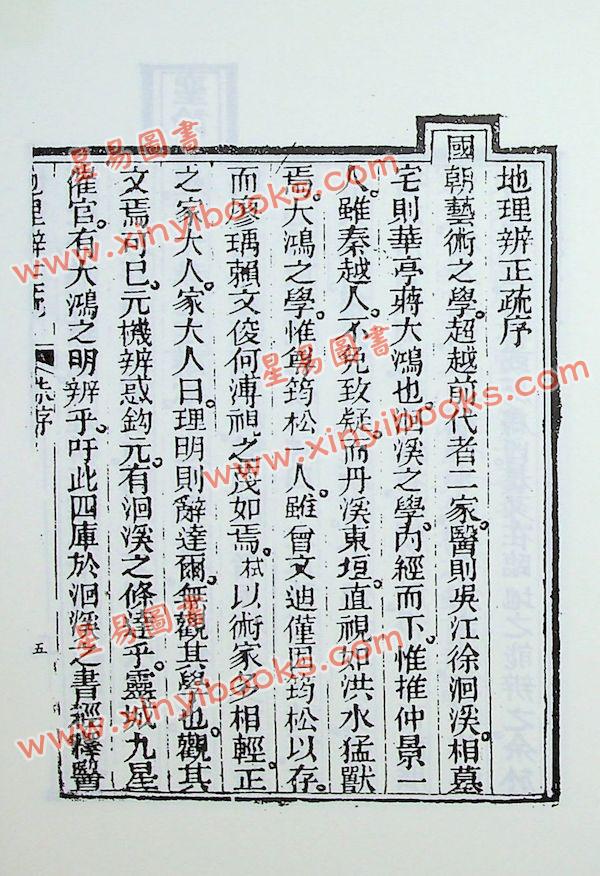 地理辨正疏序
國朝藝術之學。超越前代者二家。醫則吳江徐洄溪。相墓
宅則華亭蔣大鴻也。洄溪之學。內經而下。惟推仲景一
人。雖秦越人。不免致疑。而丹溪東垣。直視如洪水猛獸
焉。大鴻之學。惟與筠松一人。雖曾文迪僅因筠松以存。
而廖瑀賴文俊何溥視之蔑如焉。栻以術家多相輕。正
之家大人。家大人曰。理明則辭達爾。無觀其學也。觀其
文焉可已。元機辨惑鈎元。有洄溪之條達乎。靈城九星
催官。有大鴻之明辨乎。吁此四庫於洄溪之書經醫
地理辨正疏
序
五
星易圖書
www.xinyibooks.com
星易圖書
www.xinyibooks.com
星易圖書
www.xinyibooks.com